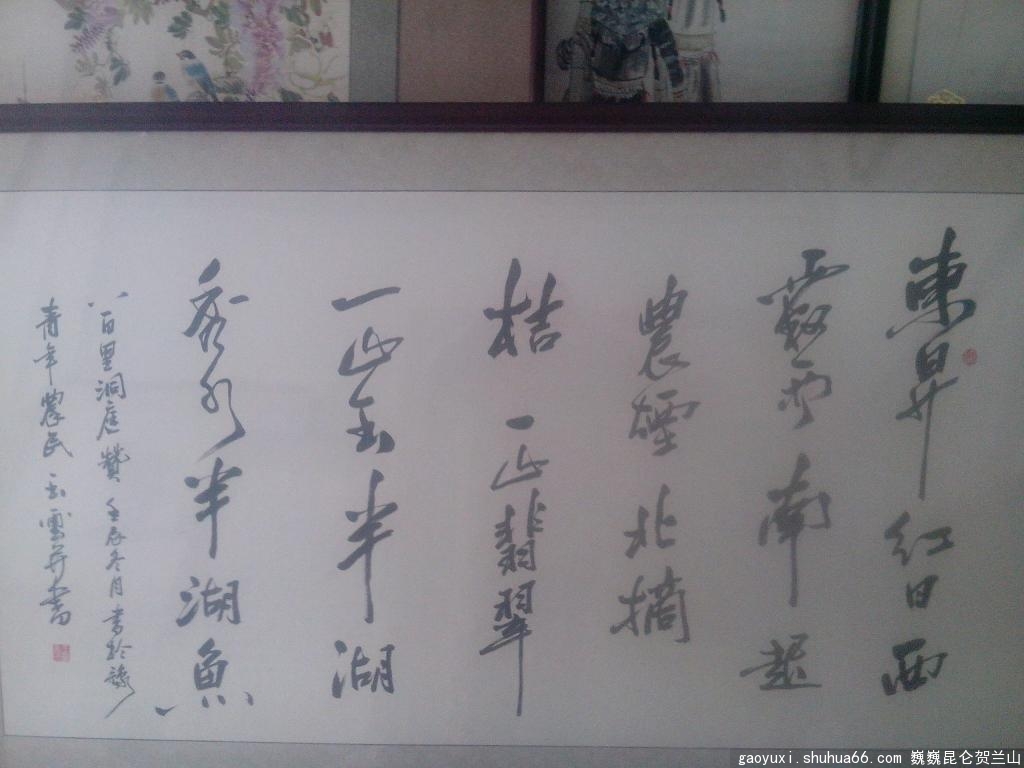 東昇紅日西
霧雨南起
農煙北摘
桔一山翡翠
一山玉半湖
秀水半湖魚
八百里洞庭贊 壬辰冬月書於
青年農民雲并書
gaoyuxi.shuhua66.com 巍巍昆仑贺兰山